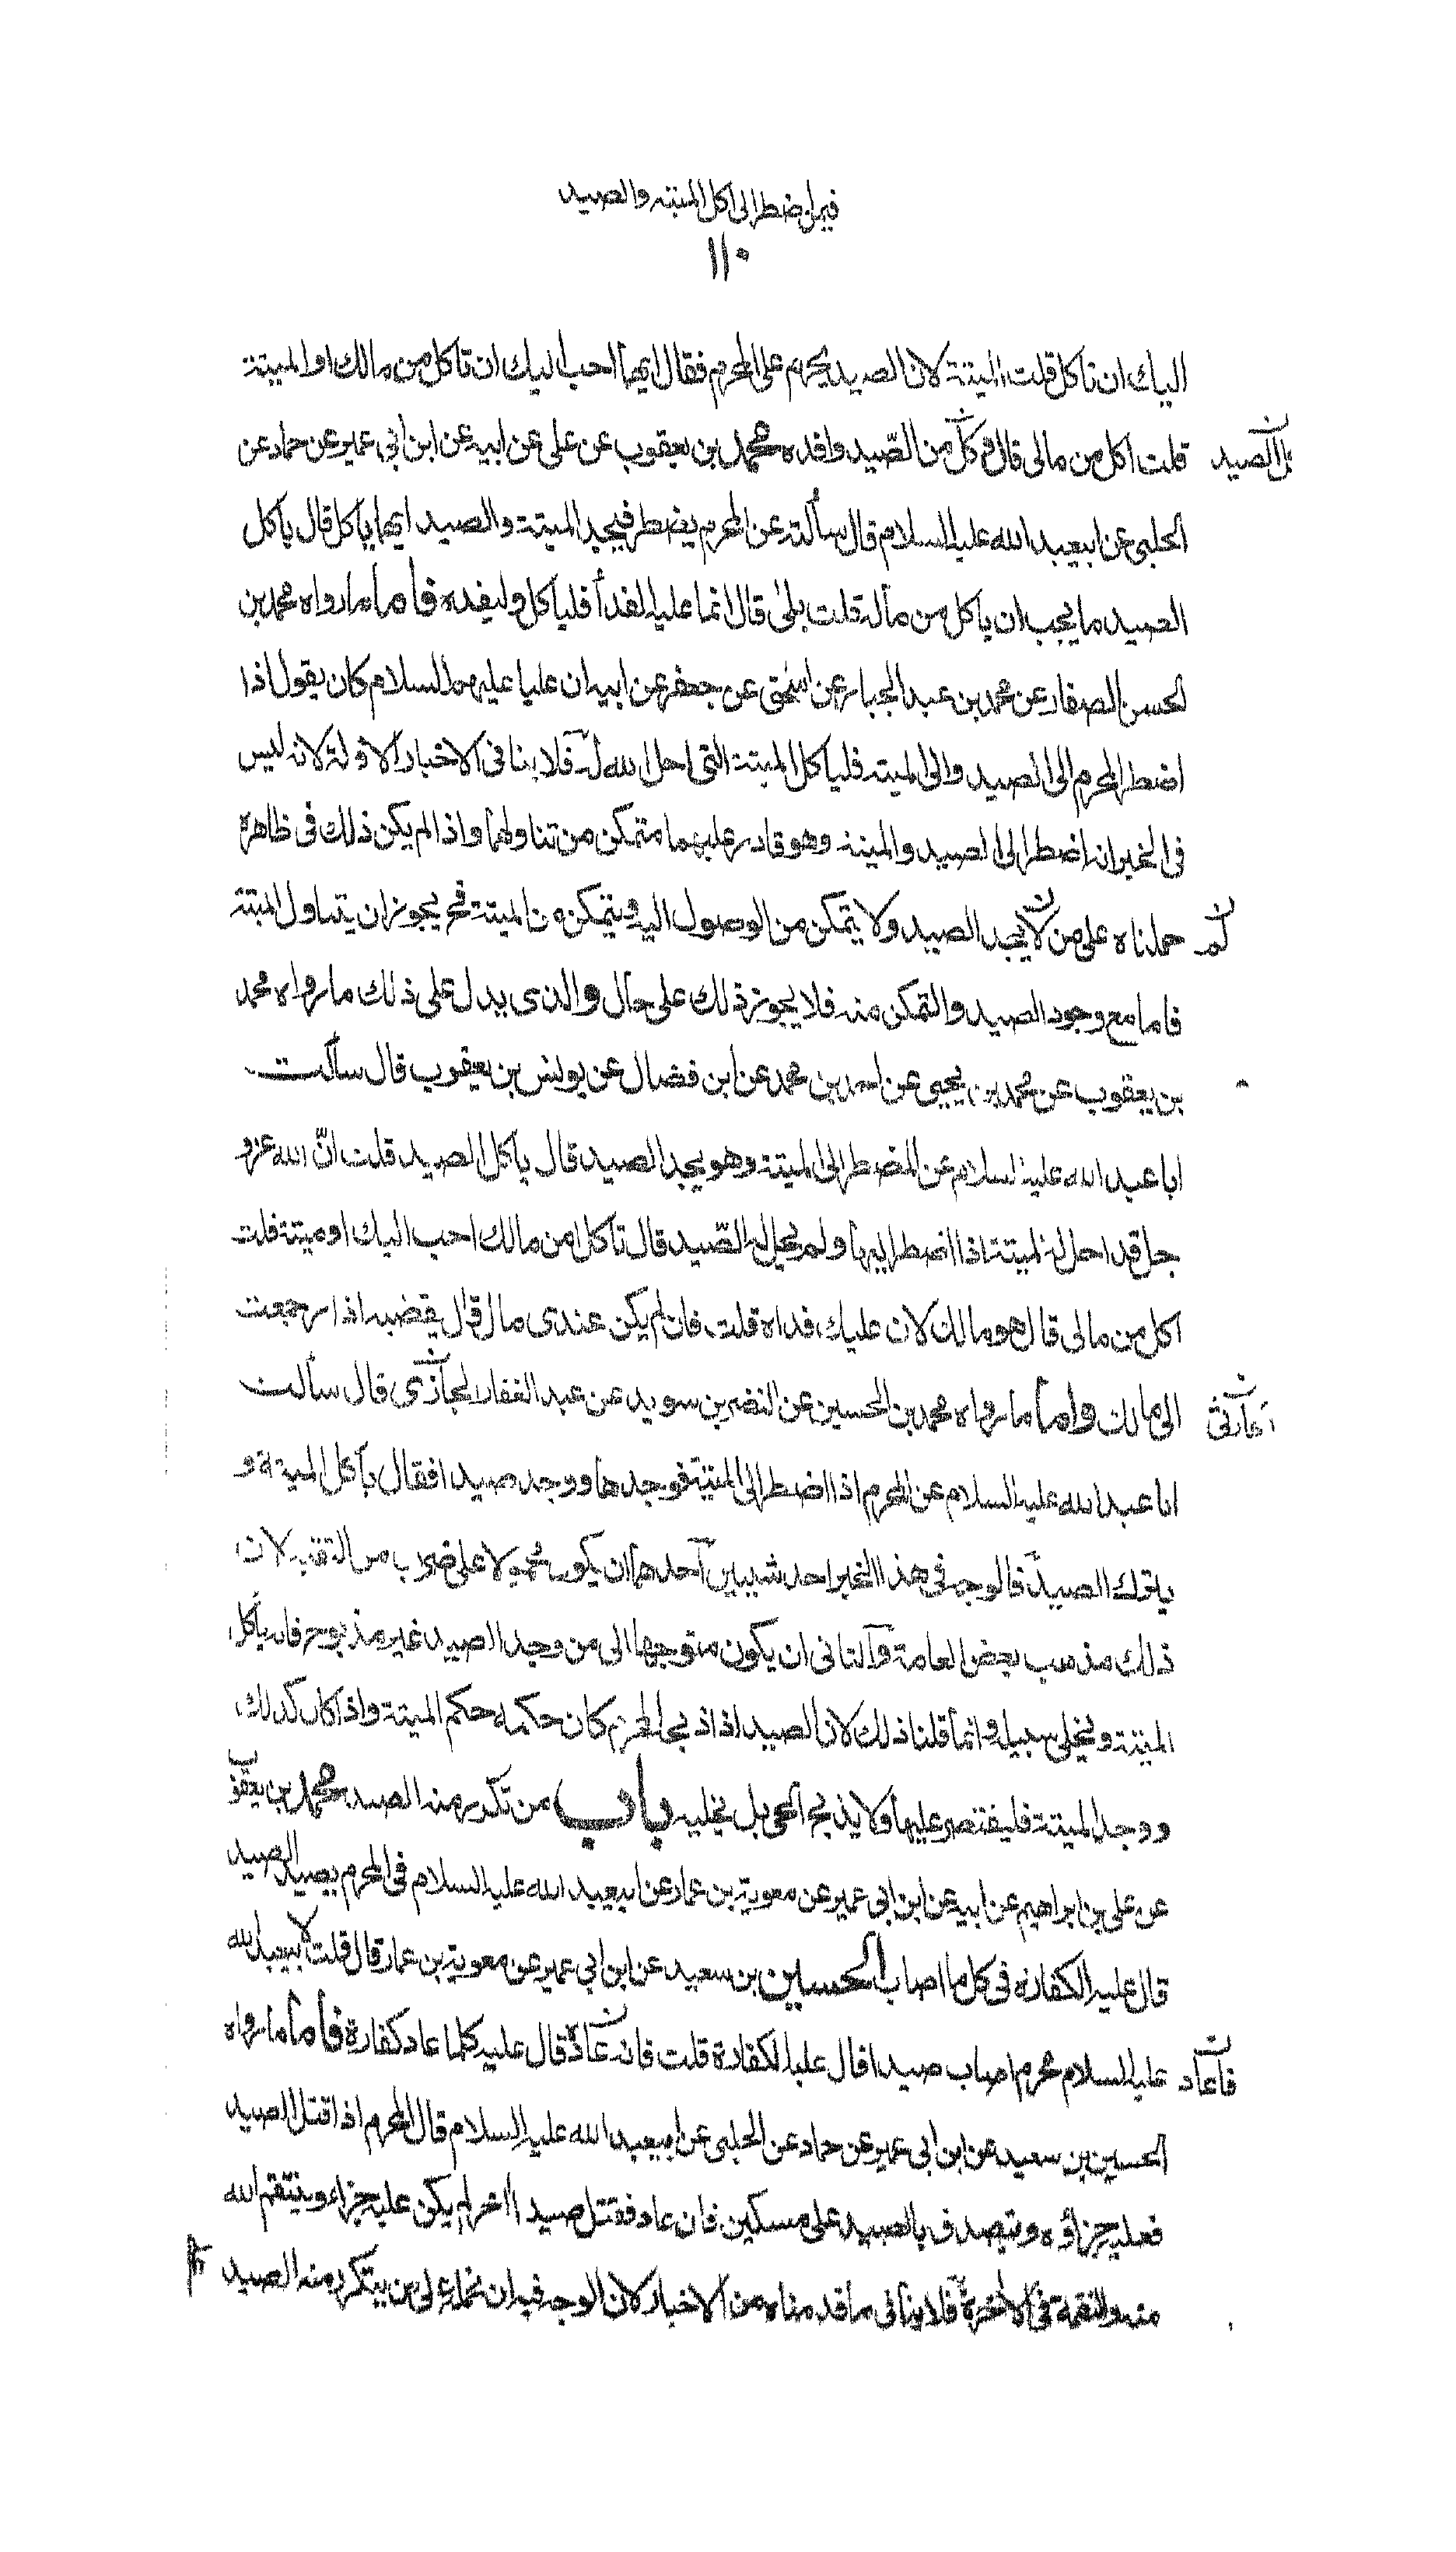 فيمن اضطر الى اكل الميتة والصيد
١١٠
اليك ان تاكل قلت الميتة لان الصيد يحرم على المحرم فقال ايهما احب اليك ان تاكل من مالك او الميتة
قلت اكل من مالى قال فكل من الصّيد وافده محمد بن يعقوب عن على عن ابيه عن ابن ابى عمير عن حماد عن
كل الصيد
الحلبى عن ابيعبد الله عليه السلام قال سألته عن المحرم يضطر فيجد الميتة والصيد ايهما ياكل قال ياكل
الصيد ما يجب ان ياكل من ماله قلت بلى قال انما عليه الفدأ فلياكل وليفده فأما ما رواه محمد بن
الحسن الصفار عن محمد بن عبد الجبار عن اسحق عن جعفر عن ابيه ان عليا عليهما السلام كان يقول اذا
اضطر المحرم الى الصيد والى الميته فلياكل الميتة التى احل الله له فلا ينافى الاخبار الاولة لانه ليس
فى الخبر انه اضطر الى الصيد والميتة وهو قادر عليهما متمكن من تناولهما واذا لم يكن ذلك فى ظاهره
حملناه على من لا يجد الصيد ولا يتمكن من الوصول اليه ويتمكن من الميتة فح يجوز ان يتناول الميتة
لم
فاما مع وجود الصيد والتمكن منه فلا يجوز ذلك على حال والذى يدل على ذلك ما رواه محمد
بن يعقوب عن محمد بن يحيى عن احمد بن محمد عن ابن فضال عن يونس بن يعقوب قال سألت
ابا عبد الله عليه السلام عن المضطر الى الميتة وهو يجد الصيد قال ياكل الصيد قلت انّ الله عز و
جل قد احل له الميتة اذا اضطر اليها ولم يحل له الصّيد قال تاكل من مالك احب اليك او ميتة قلت
اكل من مالى قال هو مالك لان عليك فداه قلت فان لم يكن عندى مال قال يقضيه اذا رجعت
الى مالك واما ما رواه محمد بن الحسين عن النضر بن سويد عن عبد الغفار الجازى قال سألت
ابا عبد الله عليه السلام عن المحرم اذا اضطر الى الميتة فوجدها ووجد صيدا فقال يأكل الميتة و
يترك الصيد فالوجه فى هذا الخبر احد شيئين احدهما ان يكون محمولا على ضرب من التقية لان
ذلك مذهب بعض العامة والثانى ان يكون متوجها الى من وجد الصيد غير مذبوح فانه يأكل
الميتة ويخلى سبيله وانما قلنا ذلك لان الصيد اذا ذبحه المحرم كان حكمه حكم الميتة واذا كان كذلك
ووجد الميتة فليقتصر عليها ولا يذبح الحى بل يخليه باب من تكرر منه الصيد محمد بن يعقوب
عن على بن ابراهيم عن ابيه عن ابن ابى عمير عن معوية بن عمار عن ابيعبد الله عليه السلام فى المحرم يصيد الصيد
قال عليه الكفارة فى كل ما اصاب الحسين بن سعيد عن ابن ابي عمير عن معوية بن عمار قال قلت لابيعبد الله
عليه السلام محرم اصاب صيدا قال عليه الكفارة قلت فانه عاد قال عليه كلما عاد كفارة فأما ما رواه
فان عاد
الحسين بن سعيد عن ابن ابى عمير عن حماد عن الحلبى عن ابيعبد الله عليه السلام قال المحرم اذا قتل الصيد
فعليه جزاؤه ويتصدق بالصيد على مسكين فان عاد فقتل صيدا اخر لم يكن عليه جزاء وينتقم الله
منه والنقمة فى الاخرة فلا ينافى ما قدمناه من الاخبار لان الوجه فيه ان نحمله على من يتكرر منه الصيد